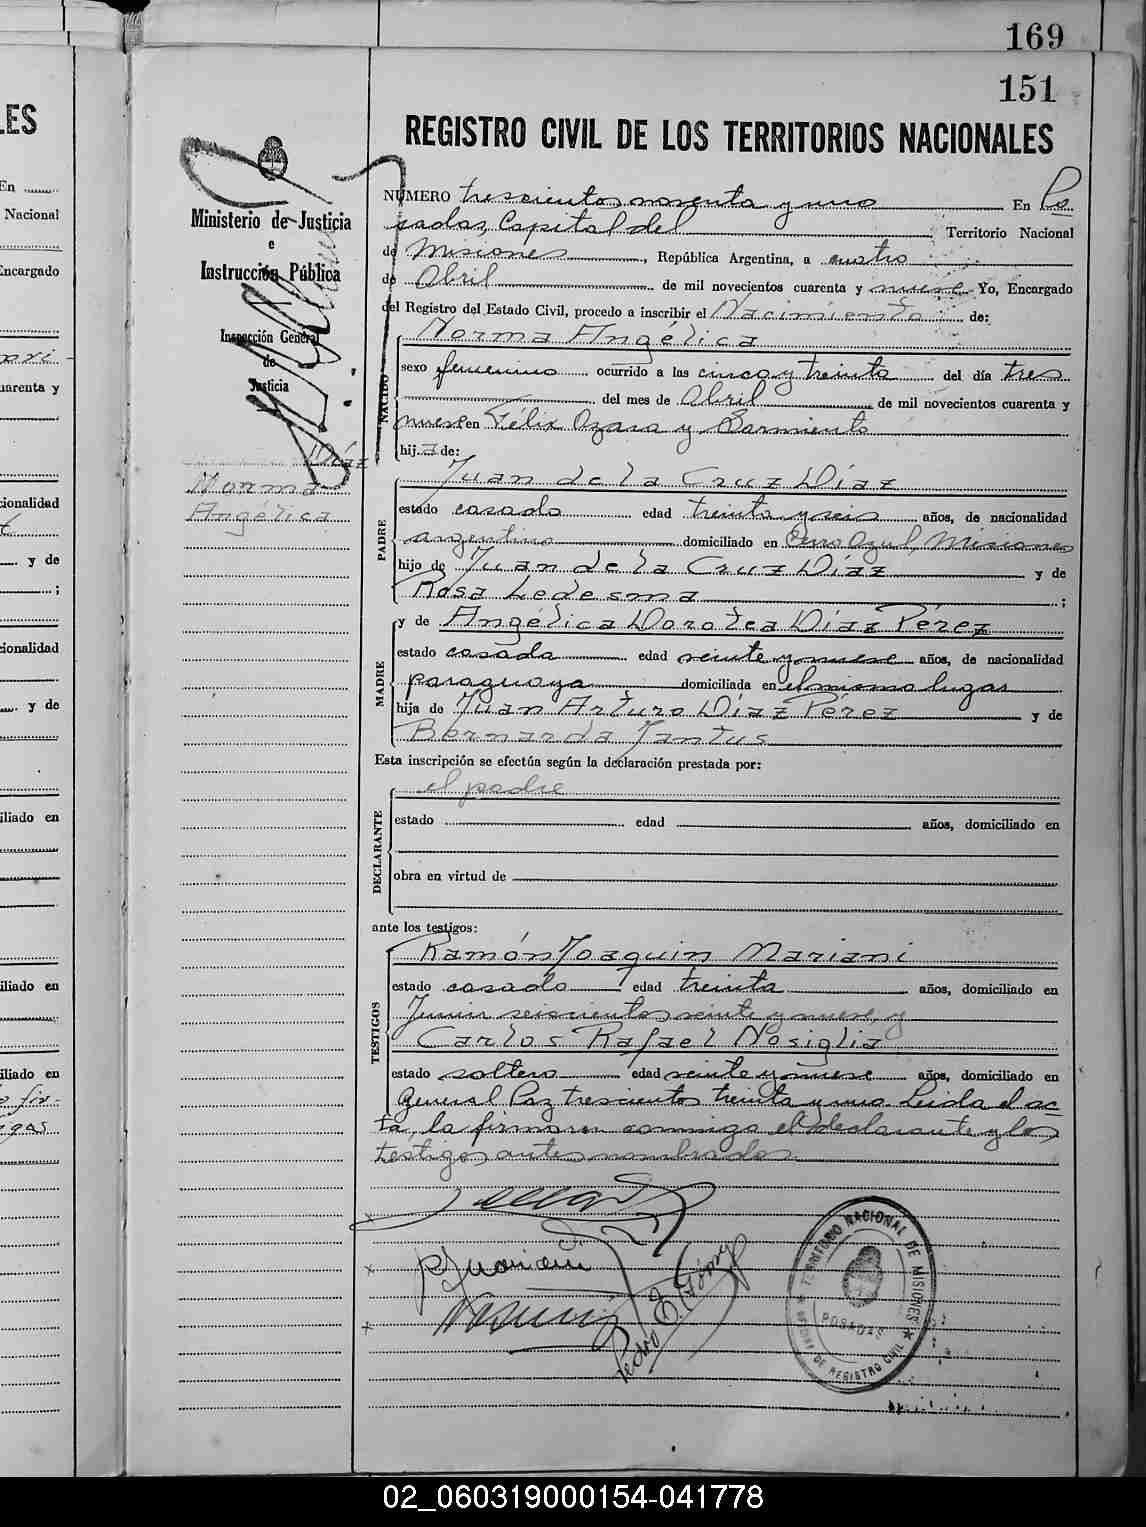 169
151
LES
REGISTRO CIVIL DE LOS TERRITORIOS NACIONALES
En
Nacional
Encargado
arenta y
cionalidad
y de
;
cionalidad
y de
iliado en
iliado en
iliado en
Ministerio de Justicia
e
Instrucción Pública
Inspección General
de
Justicia
Díaz
Norma
Angélica
NÚMERO trescientos noventa y uno En Po
sadas, Capital del Territorio Nacional
de Misiones, República Argentina, a cuatro
de Abril de mil novecientos cuarenta y nueve Yo, Encargado
del Registro del Estado Civil, procedo a inscribir el Nacimiento de:
NACIDO
Norma Angélica
sexo femenino ocurrido a las cinco y treinta del día tres
del mes de Abril de mil novecientos cuarenta y
nueve en Félix Azara y Sarmiento
hija de:
PADRE
Juan de la Cruz Díaz
estado casado edad treinta y seis años, de nacionalidad
argentino domiciliado en Cerro Azul, Misiones
hijo de Juan de la Cruz Díaz y de
Rosa Ledesma ;
MADRE
y de Angélica Dorotea Díaz Pérez
estado casada edad veinte y nueve años, de nacionalidad
paraguaya domiciliada en el mismo lugar
hija de Juan Arturo Díaz Pérez y de
Bernarda Jantus
Esta inscripción se efectúa según la declaración prestada por:
DECLARANTE
el padre
estado edad años, domiciliado en
obra en virtud de
ante los testigos:
TESTIGOS
Ramón Joaquin Mariani
estado casado edad treinta años, domiciliado en
Junin seiscientos veinte y nueve, y
Carlos Rafael Nosiglia
estado soltero edad veinte y nueve años, domiciliado en
General Paz trescientos treinta y uno. Leida el ac-
ta, la firmaron conmigo el declarante y los
testigos antes nombrados.
Pedro E. Gómez
TERRITORIO NACIONAL DE MISIONES
POSADAS
OFICINA DE REGISTRO CIVIL
02_060319000154-041778